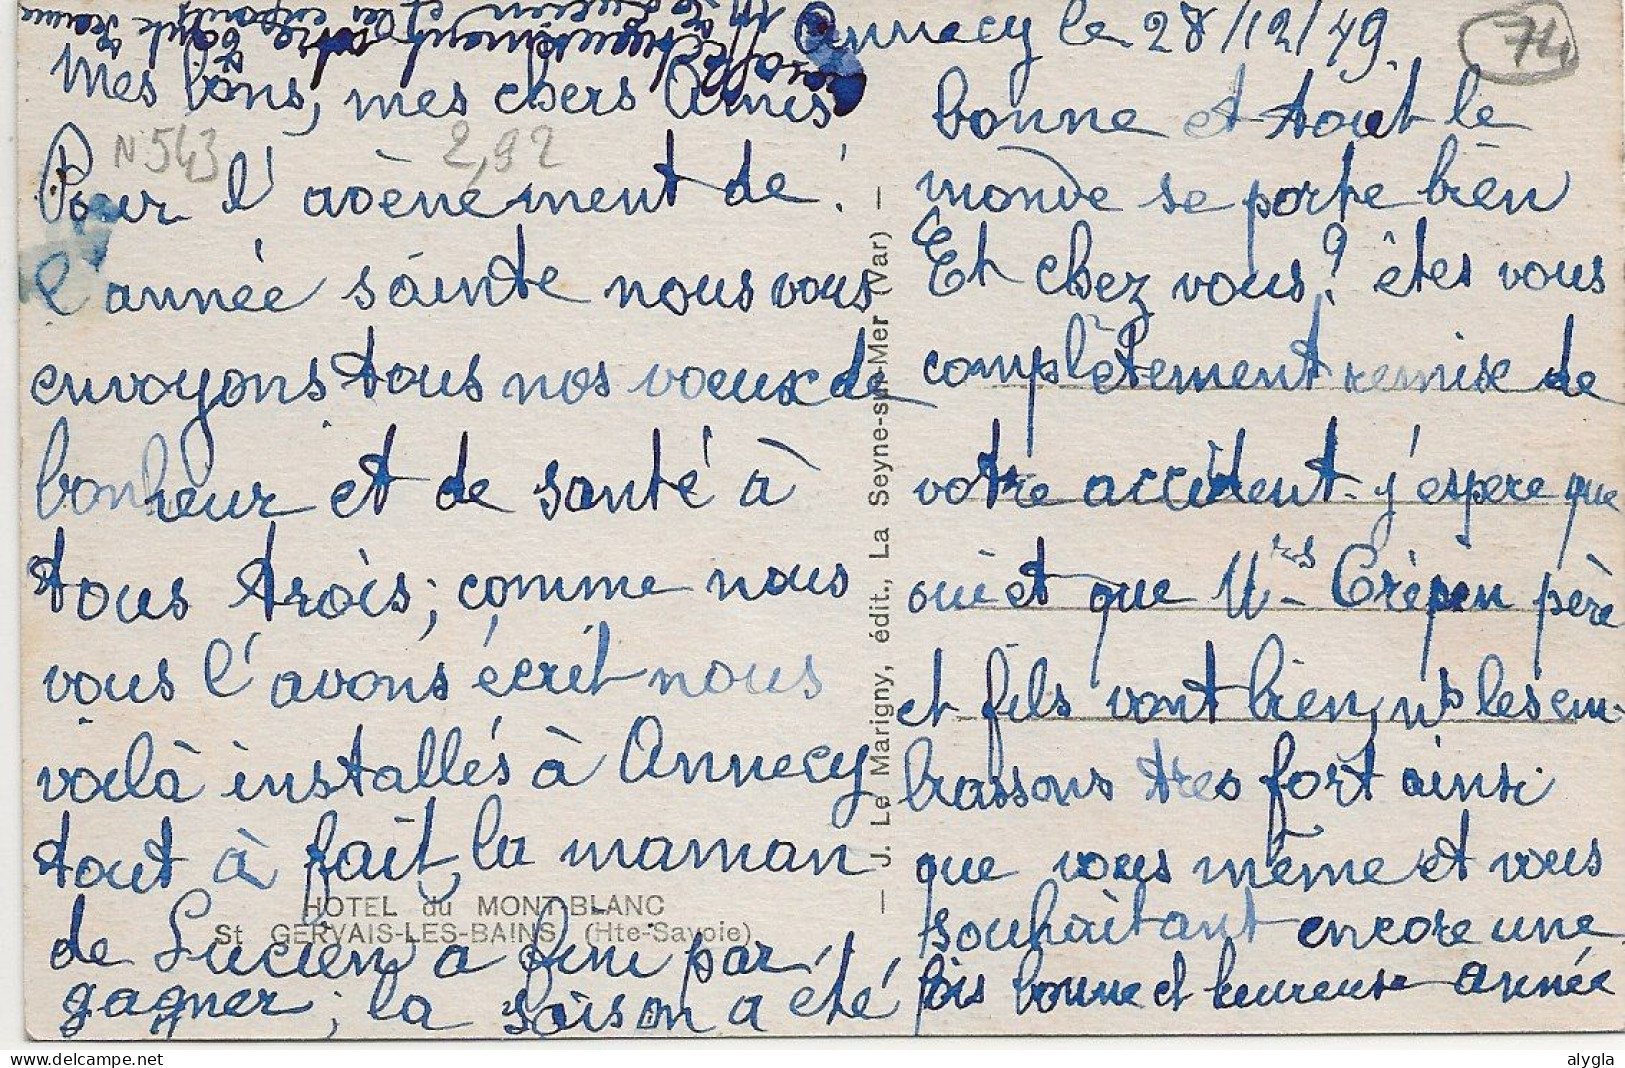 Annecy le 28/12/49
74
Mes bons, mes chers Amis
N 543
2,92
Pour l'avènement de
l'année sainte nous vous
envoyons tous nos voeux de
bonheur et de santé à
tous trois; comme nous
vous l'avons écrit nous
voilà installés à Annecy
tout à fait, la maman
de Lucien a fini par
gagner; la saison a été
HOTEL du MONT-BLANC
St GERVAIS-LES-BAINS (Hte-Savoie)
— J. Le Marigny, édit., La Seyne-sur-Mer (Var) —
bonne et tout le
monde se porte bien
Et chez vous? êtes vous
complètement remise de
votre accident. j'espère que
oui et que Mrs Crépin père
et fils vont bien, ns les em-
brassons tres fort ainsi
que vous même et vous
souhaitant encore une
fois bonne et heureuse année
affectueusement votre
Lucien et les enfants
Jeanne
alygla